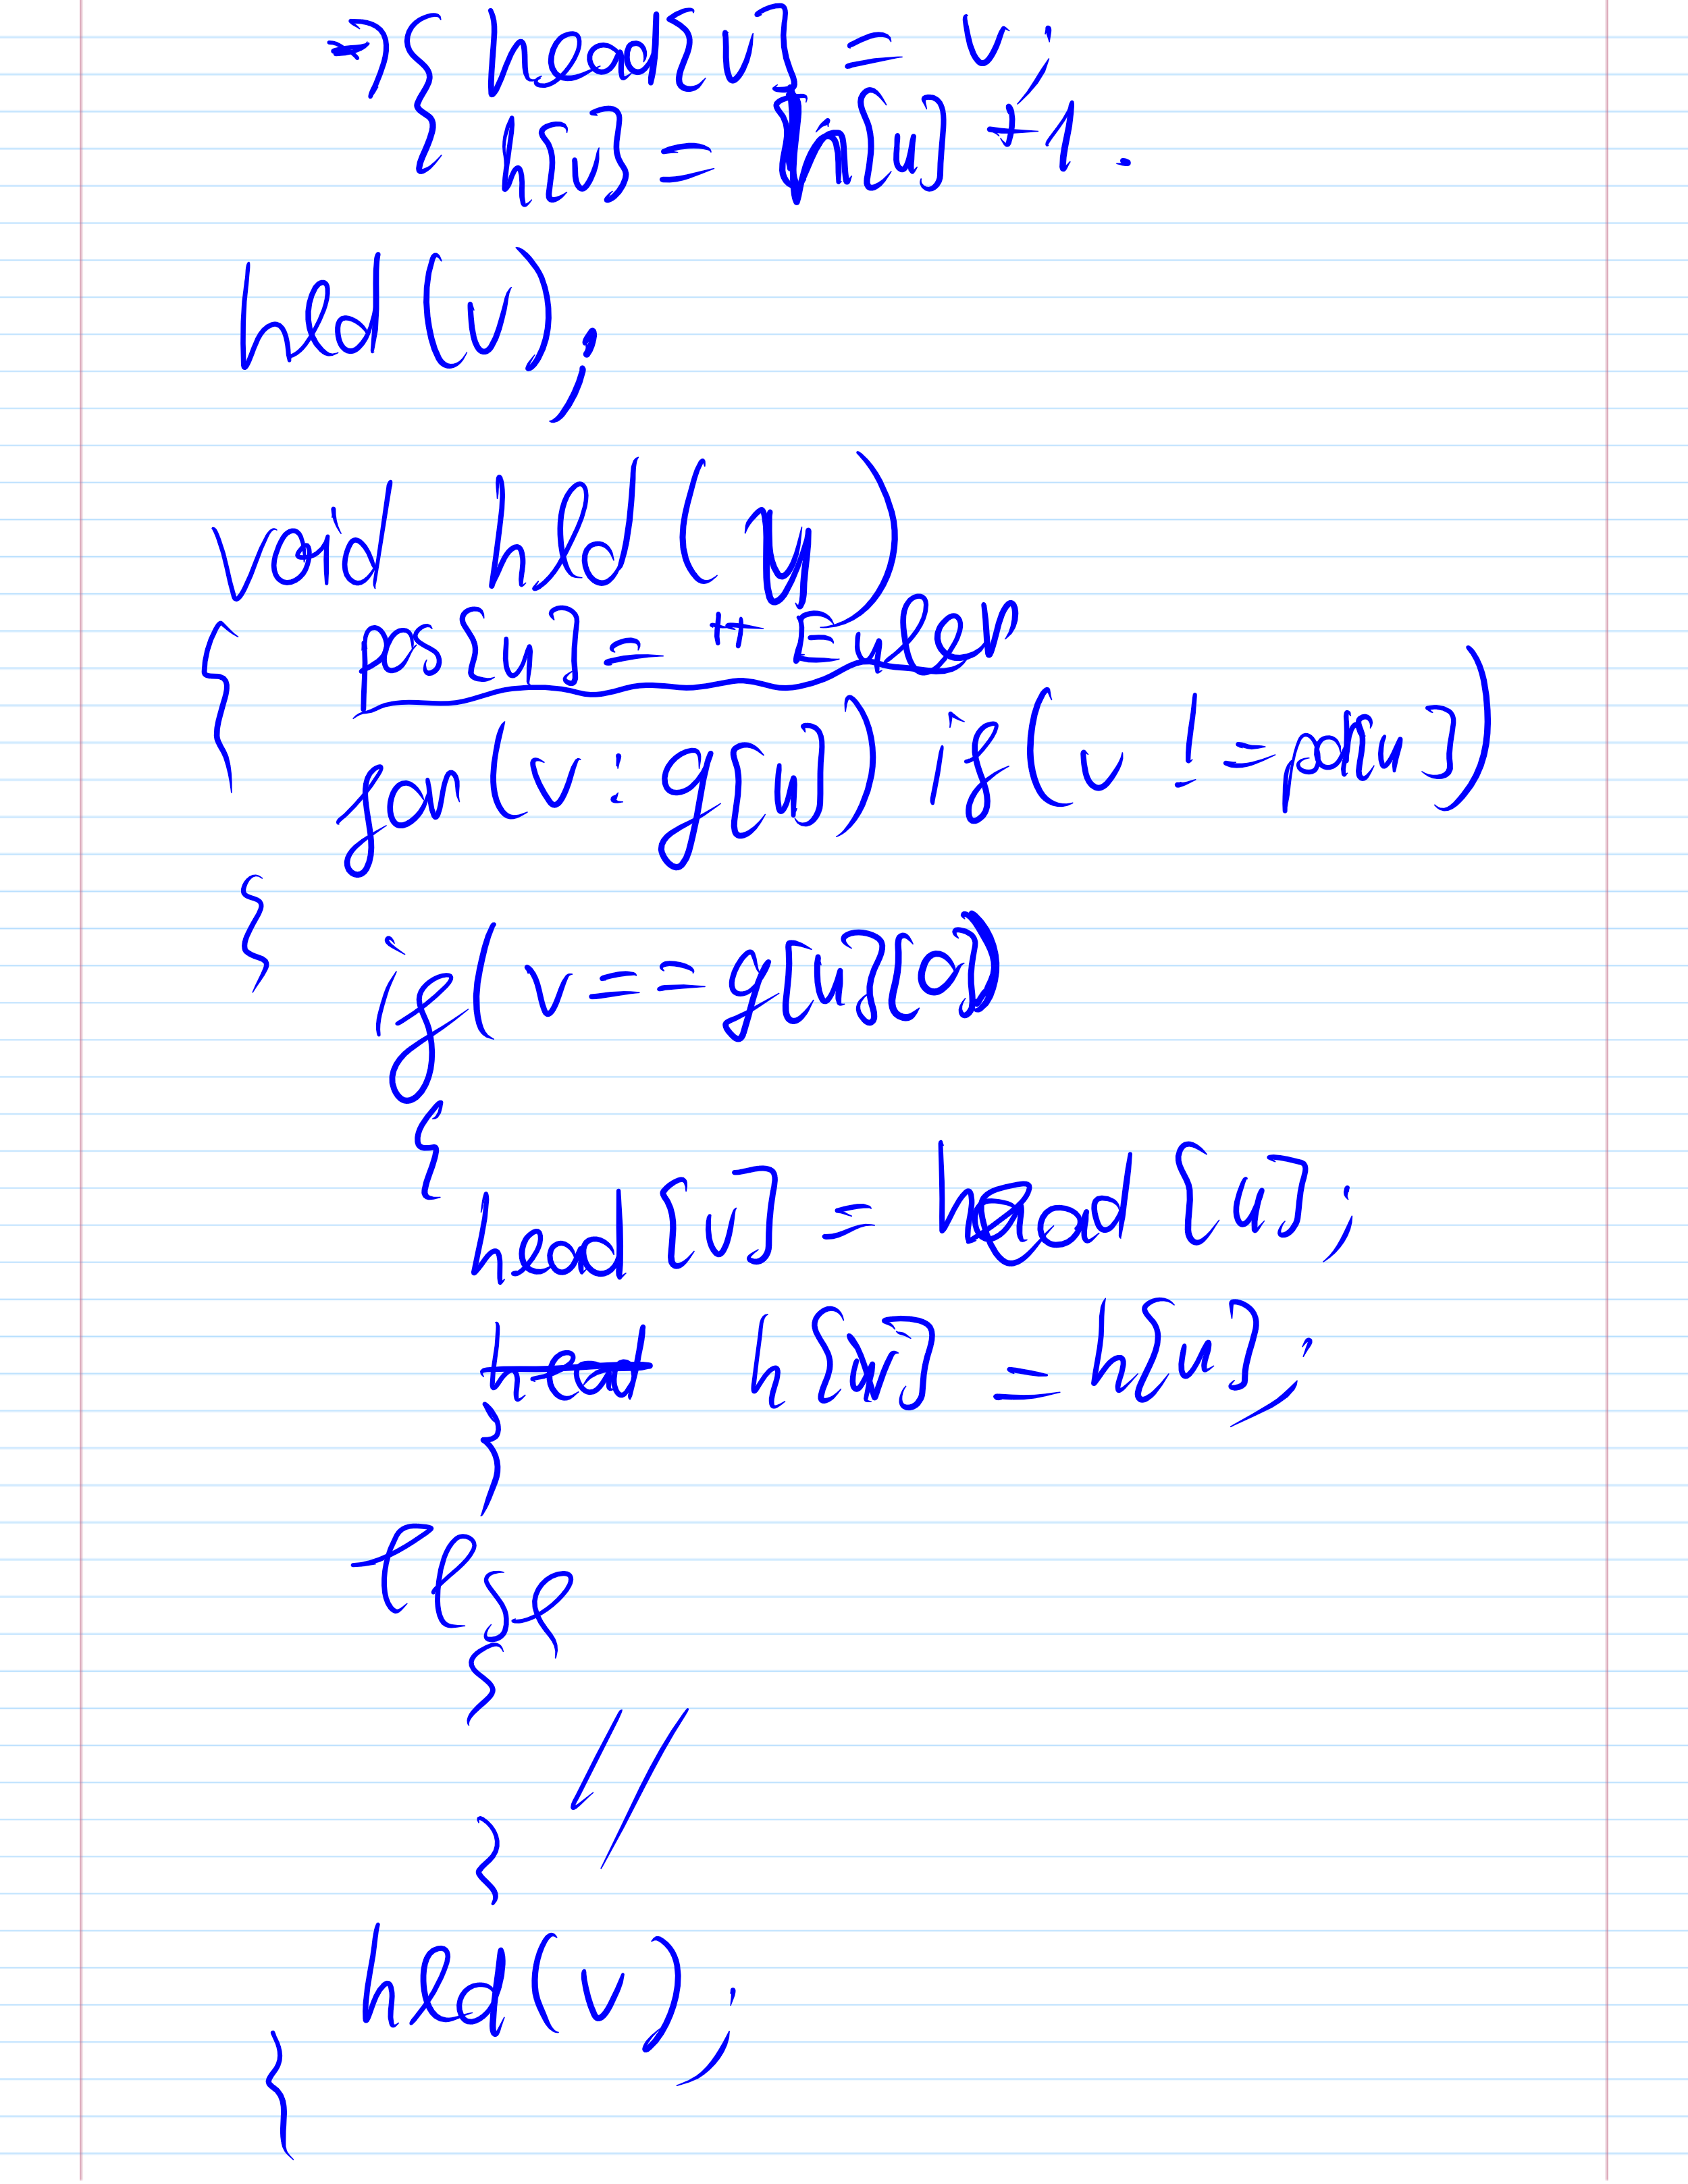 → { head[v] = v;
h[v] = h[u] +1.
hld(v);
void hld(u)
{ pos[u] = ++Euler
for(v: g[u]) if(v != pa[u])
{
if(v == g[u][0])
{
head[v] = head[u];
h[v] = h[u];
}
else
{
//
}
hld(v);
{